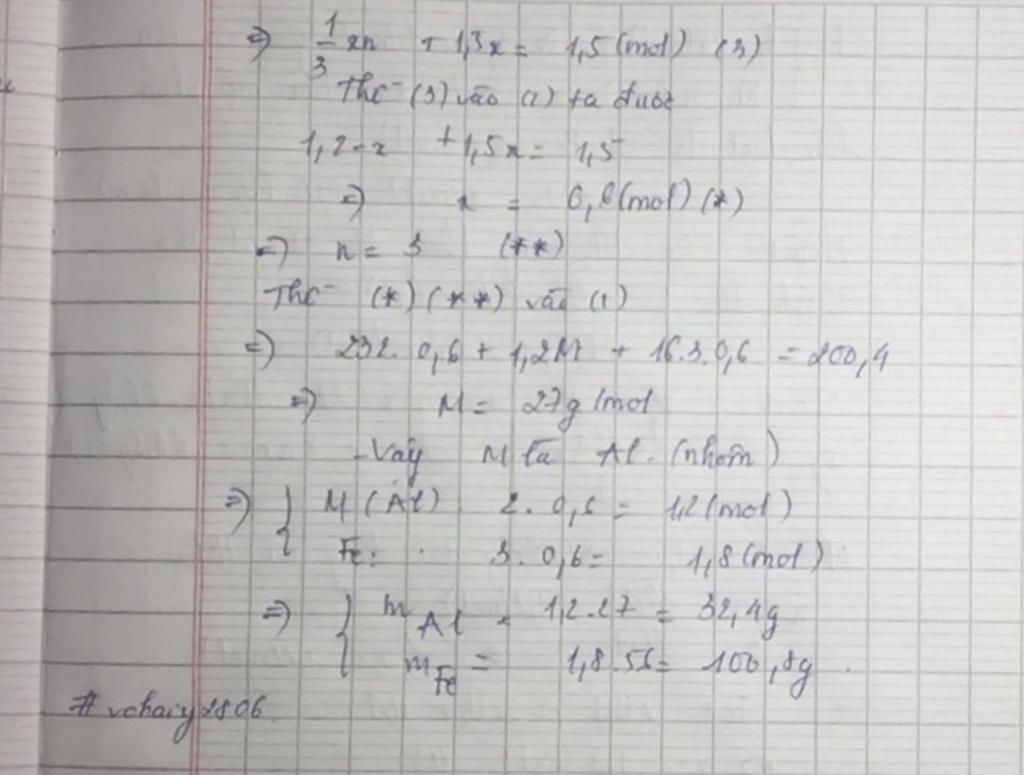 => 1/3 xn + 1,3x = 1,5 (mol) (3)
Thế (3) vào (2) ta được
1,2 - x + 1,5x = 1,5
=> x = 0,6 (mol) (*)
=> n = 3 (**)
Thế (*) (**) vào (1)
=> 232. 0,6 + 1,2M + 16.3.0,6 = 200,4
=> M = 27g/mol
- Vậy M là Al. (nhôm)
=> { M (Al) 2. 0,6 = 1,2 (mol)
Fe: 3. 0,6 = 1,8 (mol)
=> { m Al = 1,2.27 = 32,4g
m Fe = 1,8.56 = 100,8g